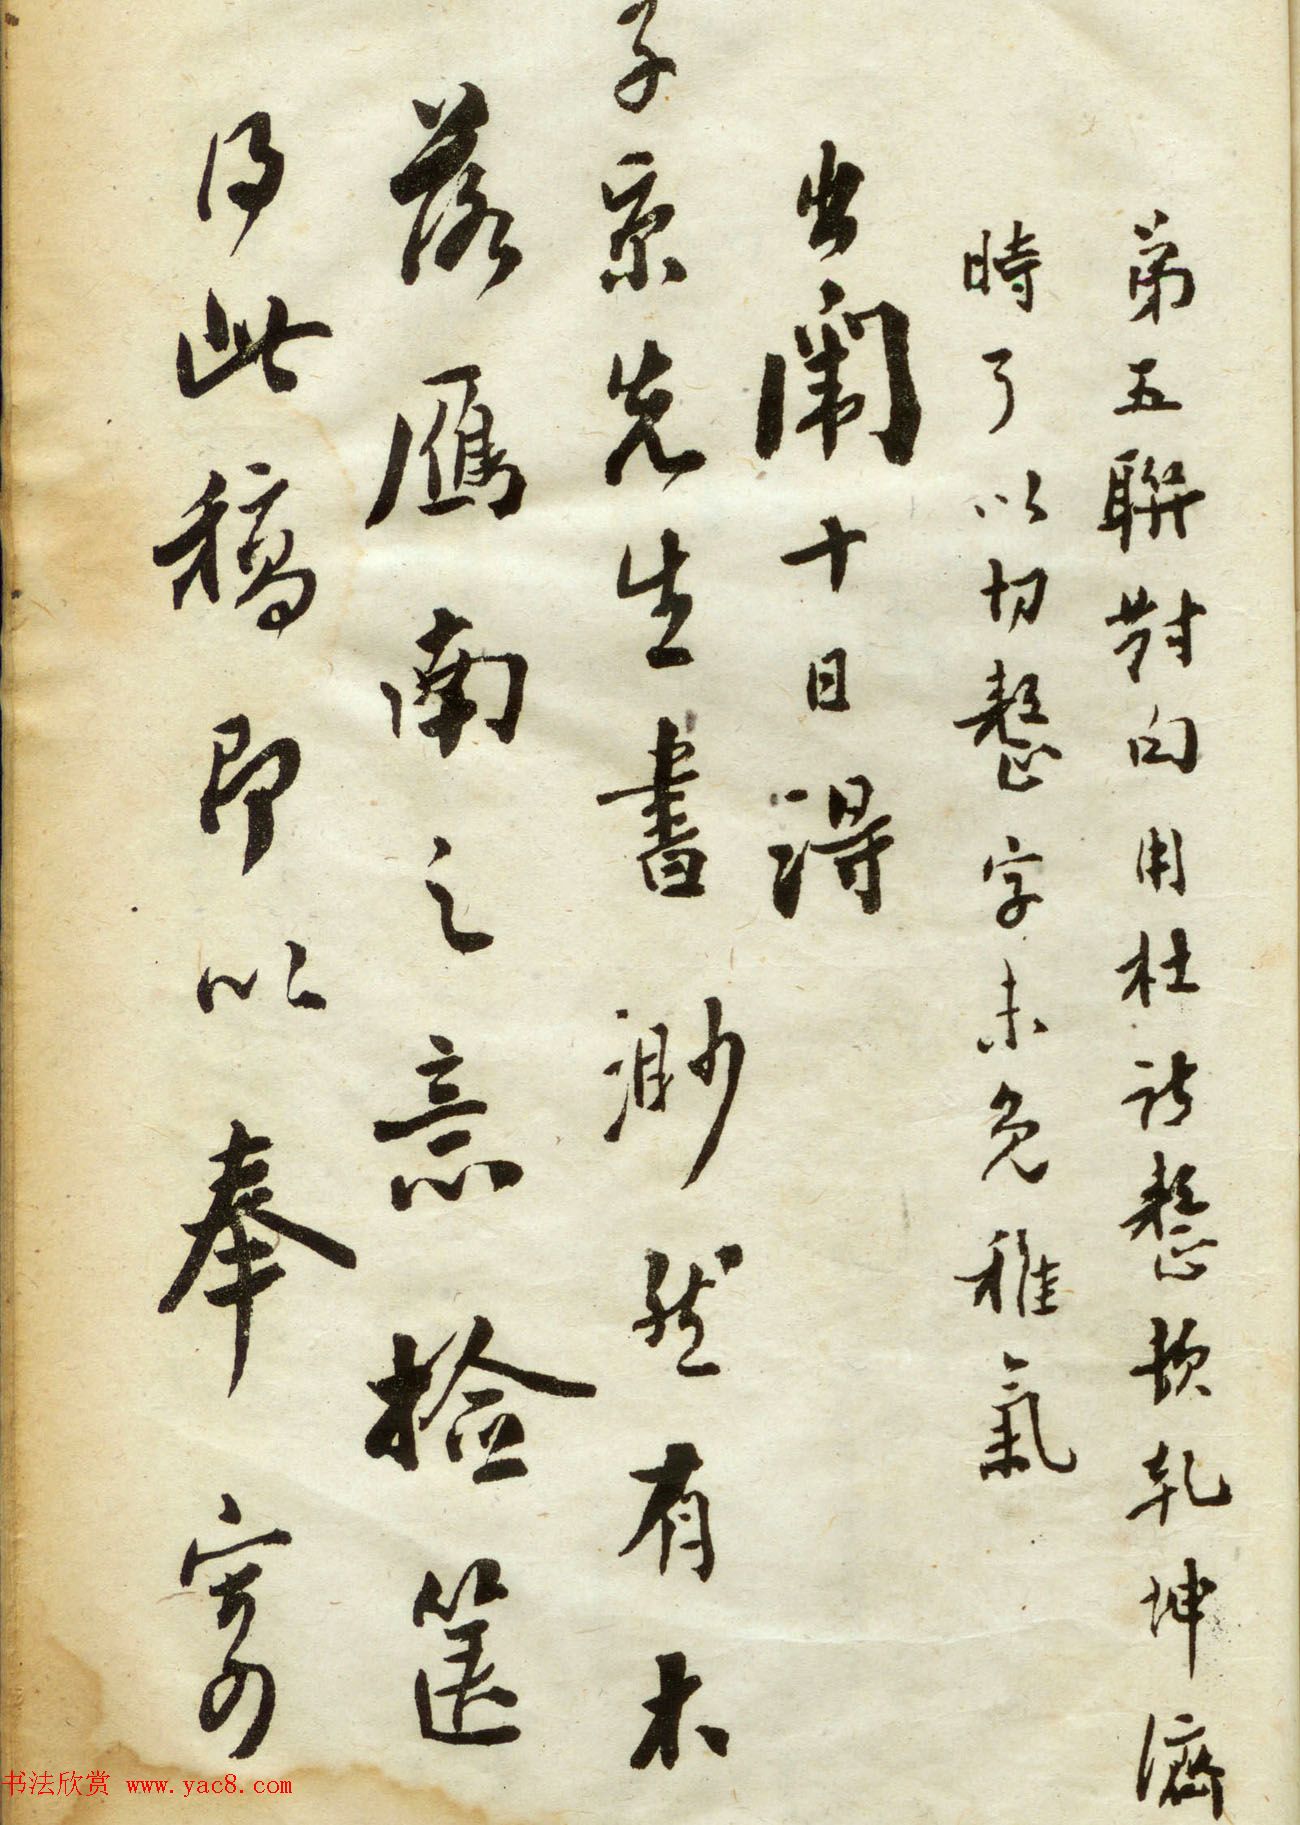 弟五聯對句用杜詩整頓乾坤濟
時了以切整字未免稚氣
出闈十日得
子京先生書渺然有木
落雁南之意檢篋
得此稿即以奉寄
书法欣赏 www.yac8.com